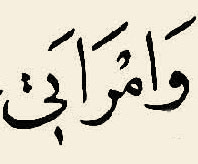 وَامْرَاَتِى